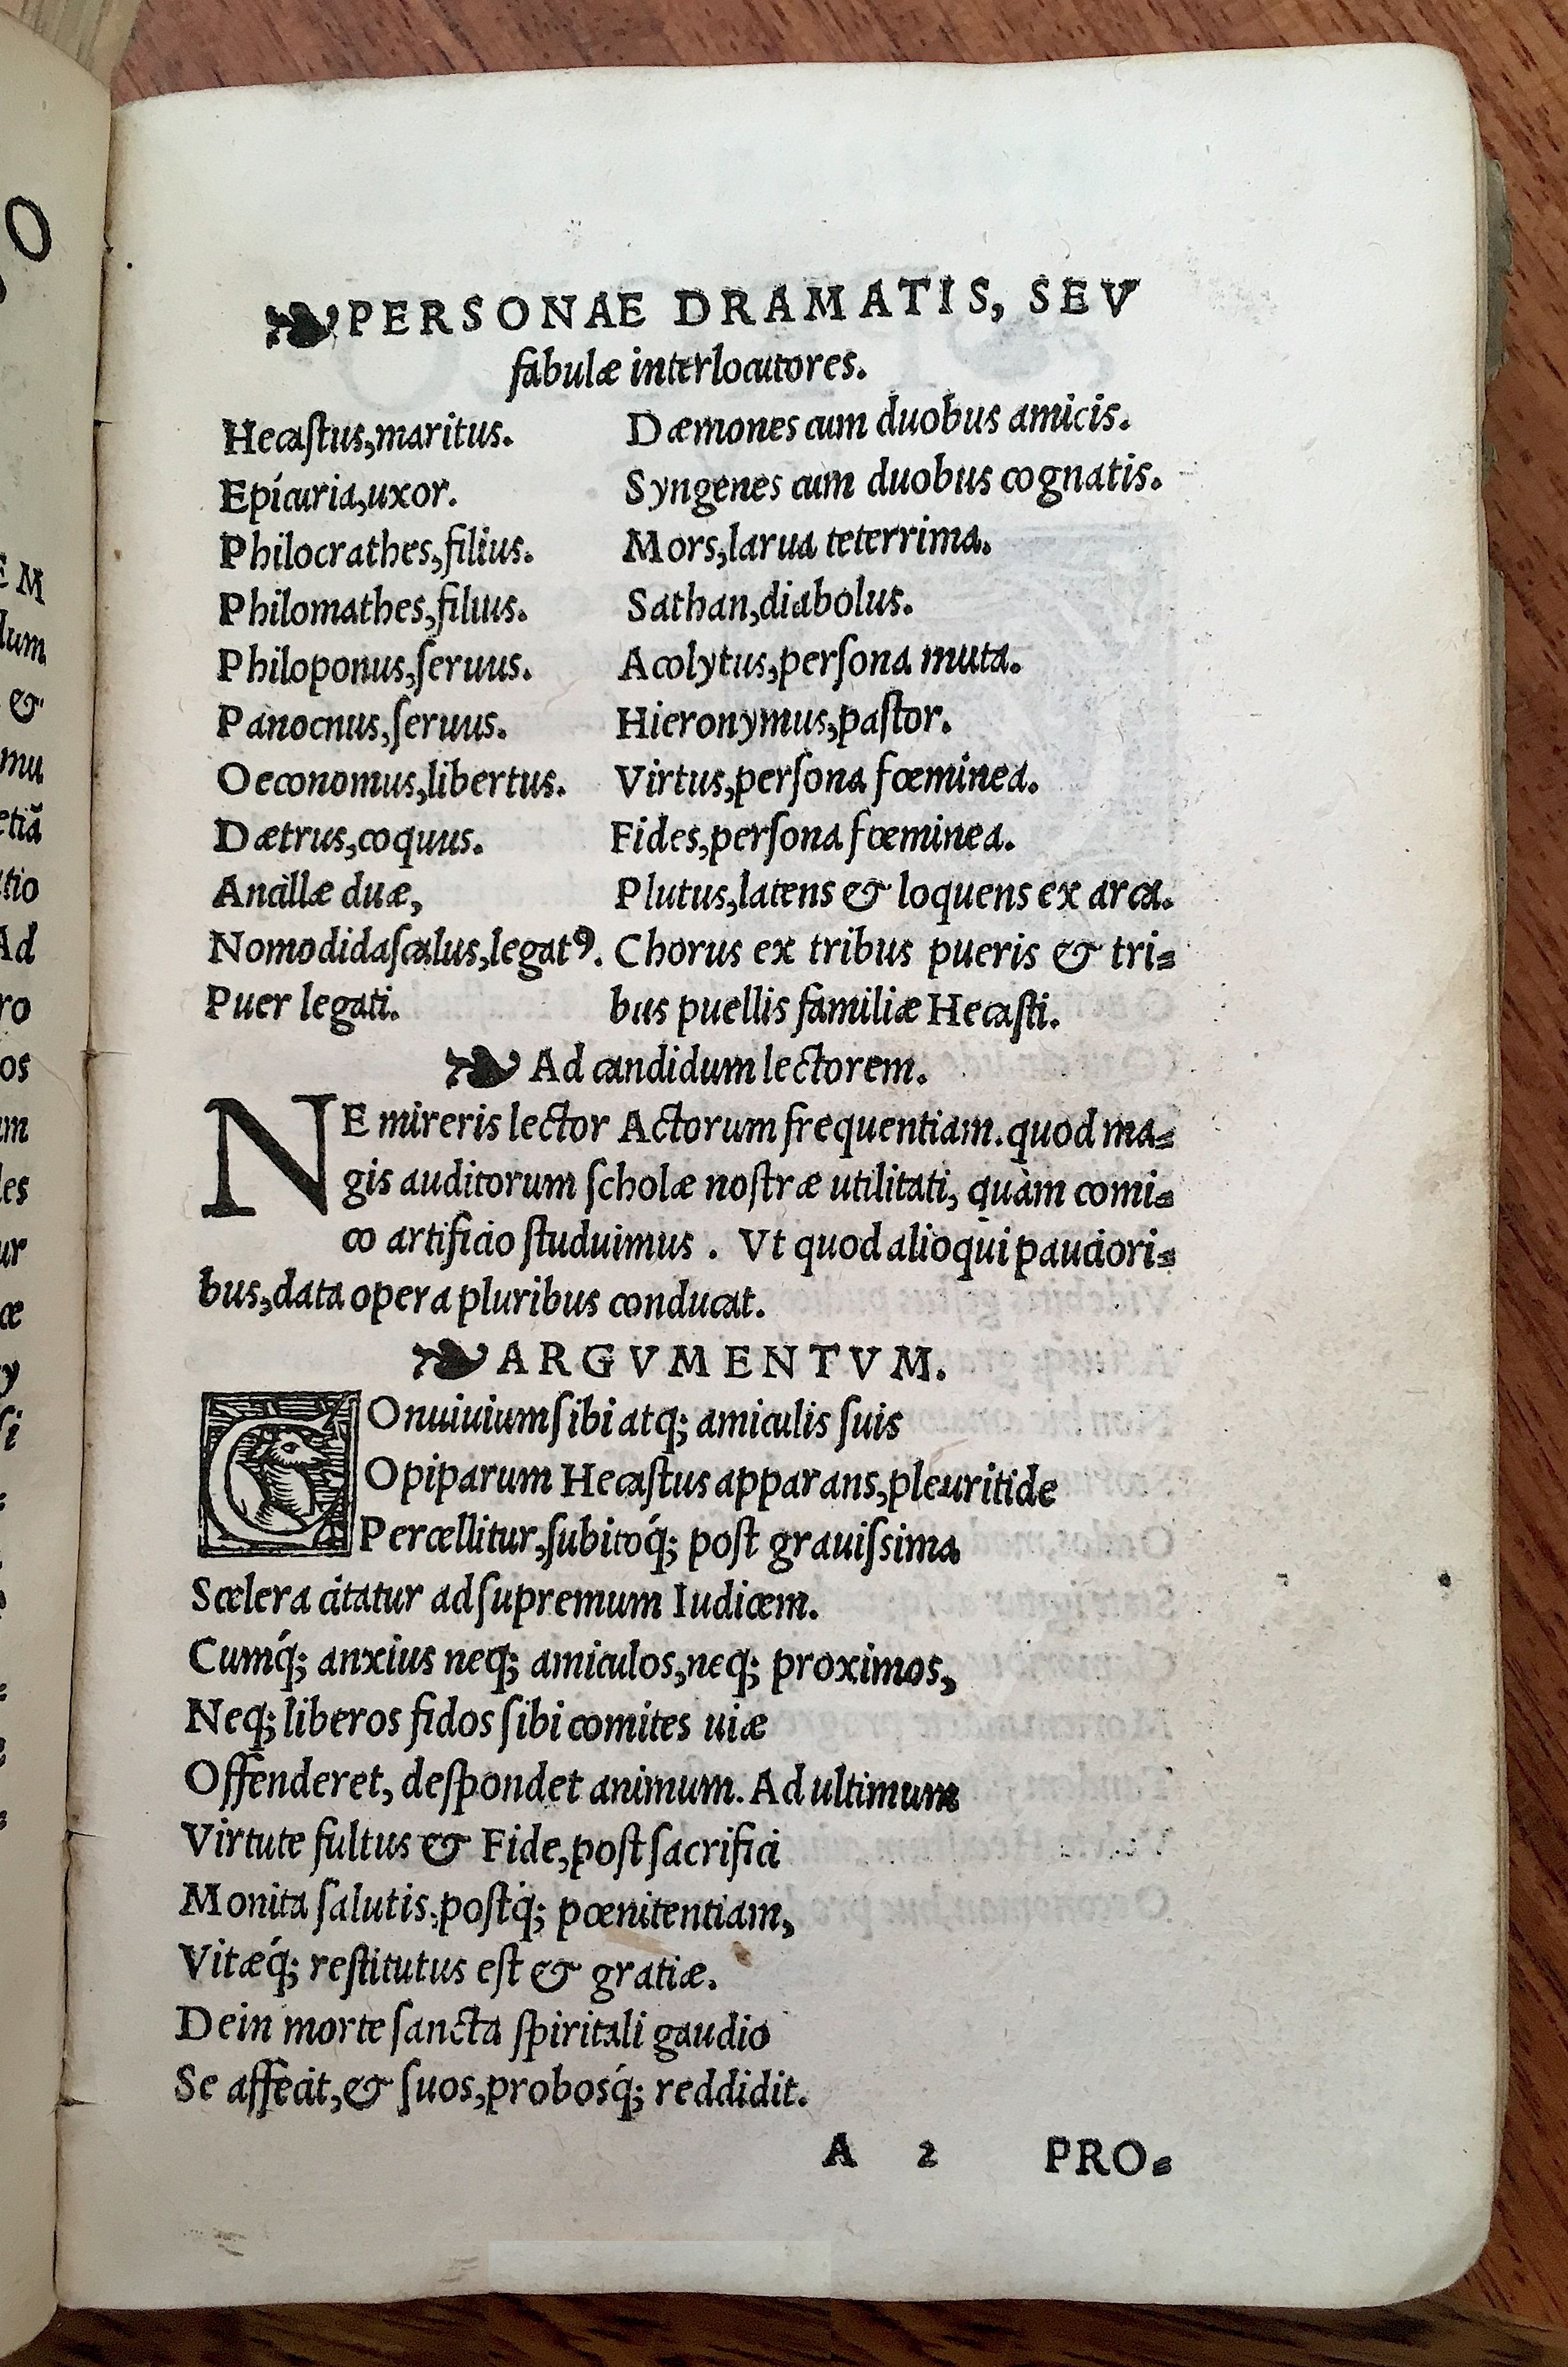 ❧PERSONAE DRAMATIS, SEV
fabulæ interlocutores.
Hecaſtus,maritus.
Epicuria,uxor.
Philocrathes,filius.
Philomathes,filius.
Philoponus,ſeruus.
Panocnus,ſeruus.
Oeconomus,libertus.
Dætrus,coquus.
Ancillæ duæ,
Nomodidaſcalus,legatꝰ.
Puer legati.
Dæmones cum duobus amicis.
Syngenes cum duobus cognatis.
Mors,larua teterrima.
Sathan,diabolus.
Acolytus,perſona muta.
Hieronymus,paſtor.
Virtus,perſona fœminea.
Fides,perſona fœminea.
Plutus,latens & loquens ex arca.
Chorus ex tribus pueris & tri-
bus puellis familiæ Hecaſti.
❧ Ad candidum lectorem.
NE mireris lector Actorum frequentiam.quod ma-
gis auditorum ſcholæ noſtræ utilitati, quàm comi-
co artificio ſtuduimus . Vt quod alioqui pauciori-
bus,data opera pluribus conducat.
❧ ARGVMENTVM.
COnuiuium ſibi atq; amiculis ſuis
Opiparum Hecaſtus apparans,pleuritide
Percellitur,ſubitoq́; post grauiſsima
Scelera citatur ad ſupremum Iudicem.
Cumq́; anxius neq; amiculos,neq; proximos,
Neq; liberos fidos ſibi comites uiæ
Offenderet, deſpondet animum. Ad ultimum
Virtute fultus & Fide,poſt ſacrifici
Monita ſalutis:poſtq́; pœnitentiam,
Vitæq́; reſtitutus eſt & gratiæ.
Dein morte ſancta ſpiritali gaudio
Se affecit,& ſuos,probosq́; reddidit.
A 2 PRO-
O
EM
lum
&
mu
etiã
tio
Ad
ro
os
um
les
ur
æ
y
ſi